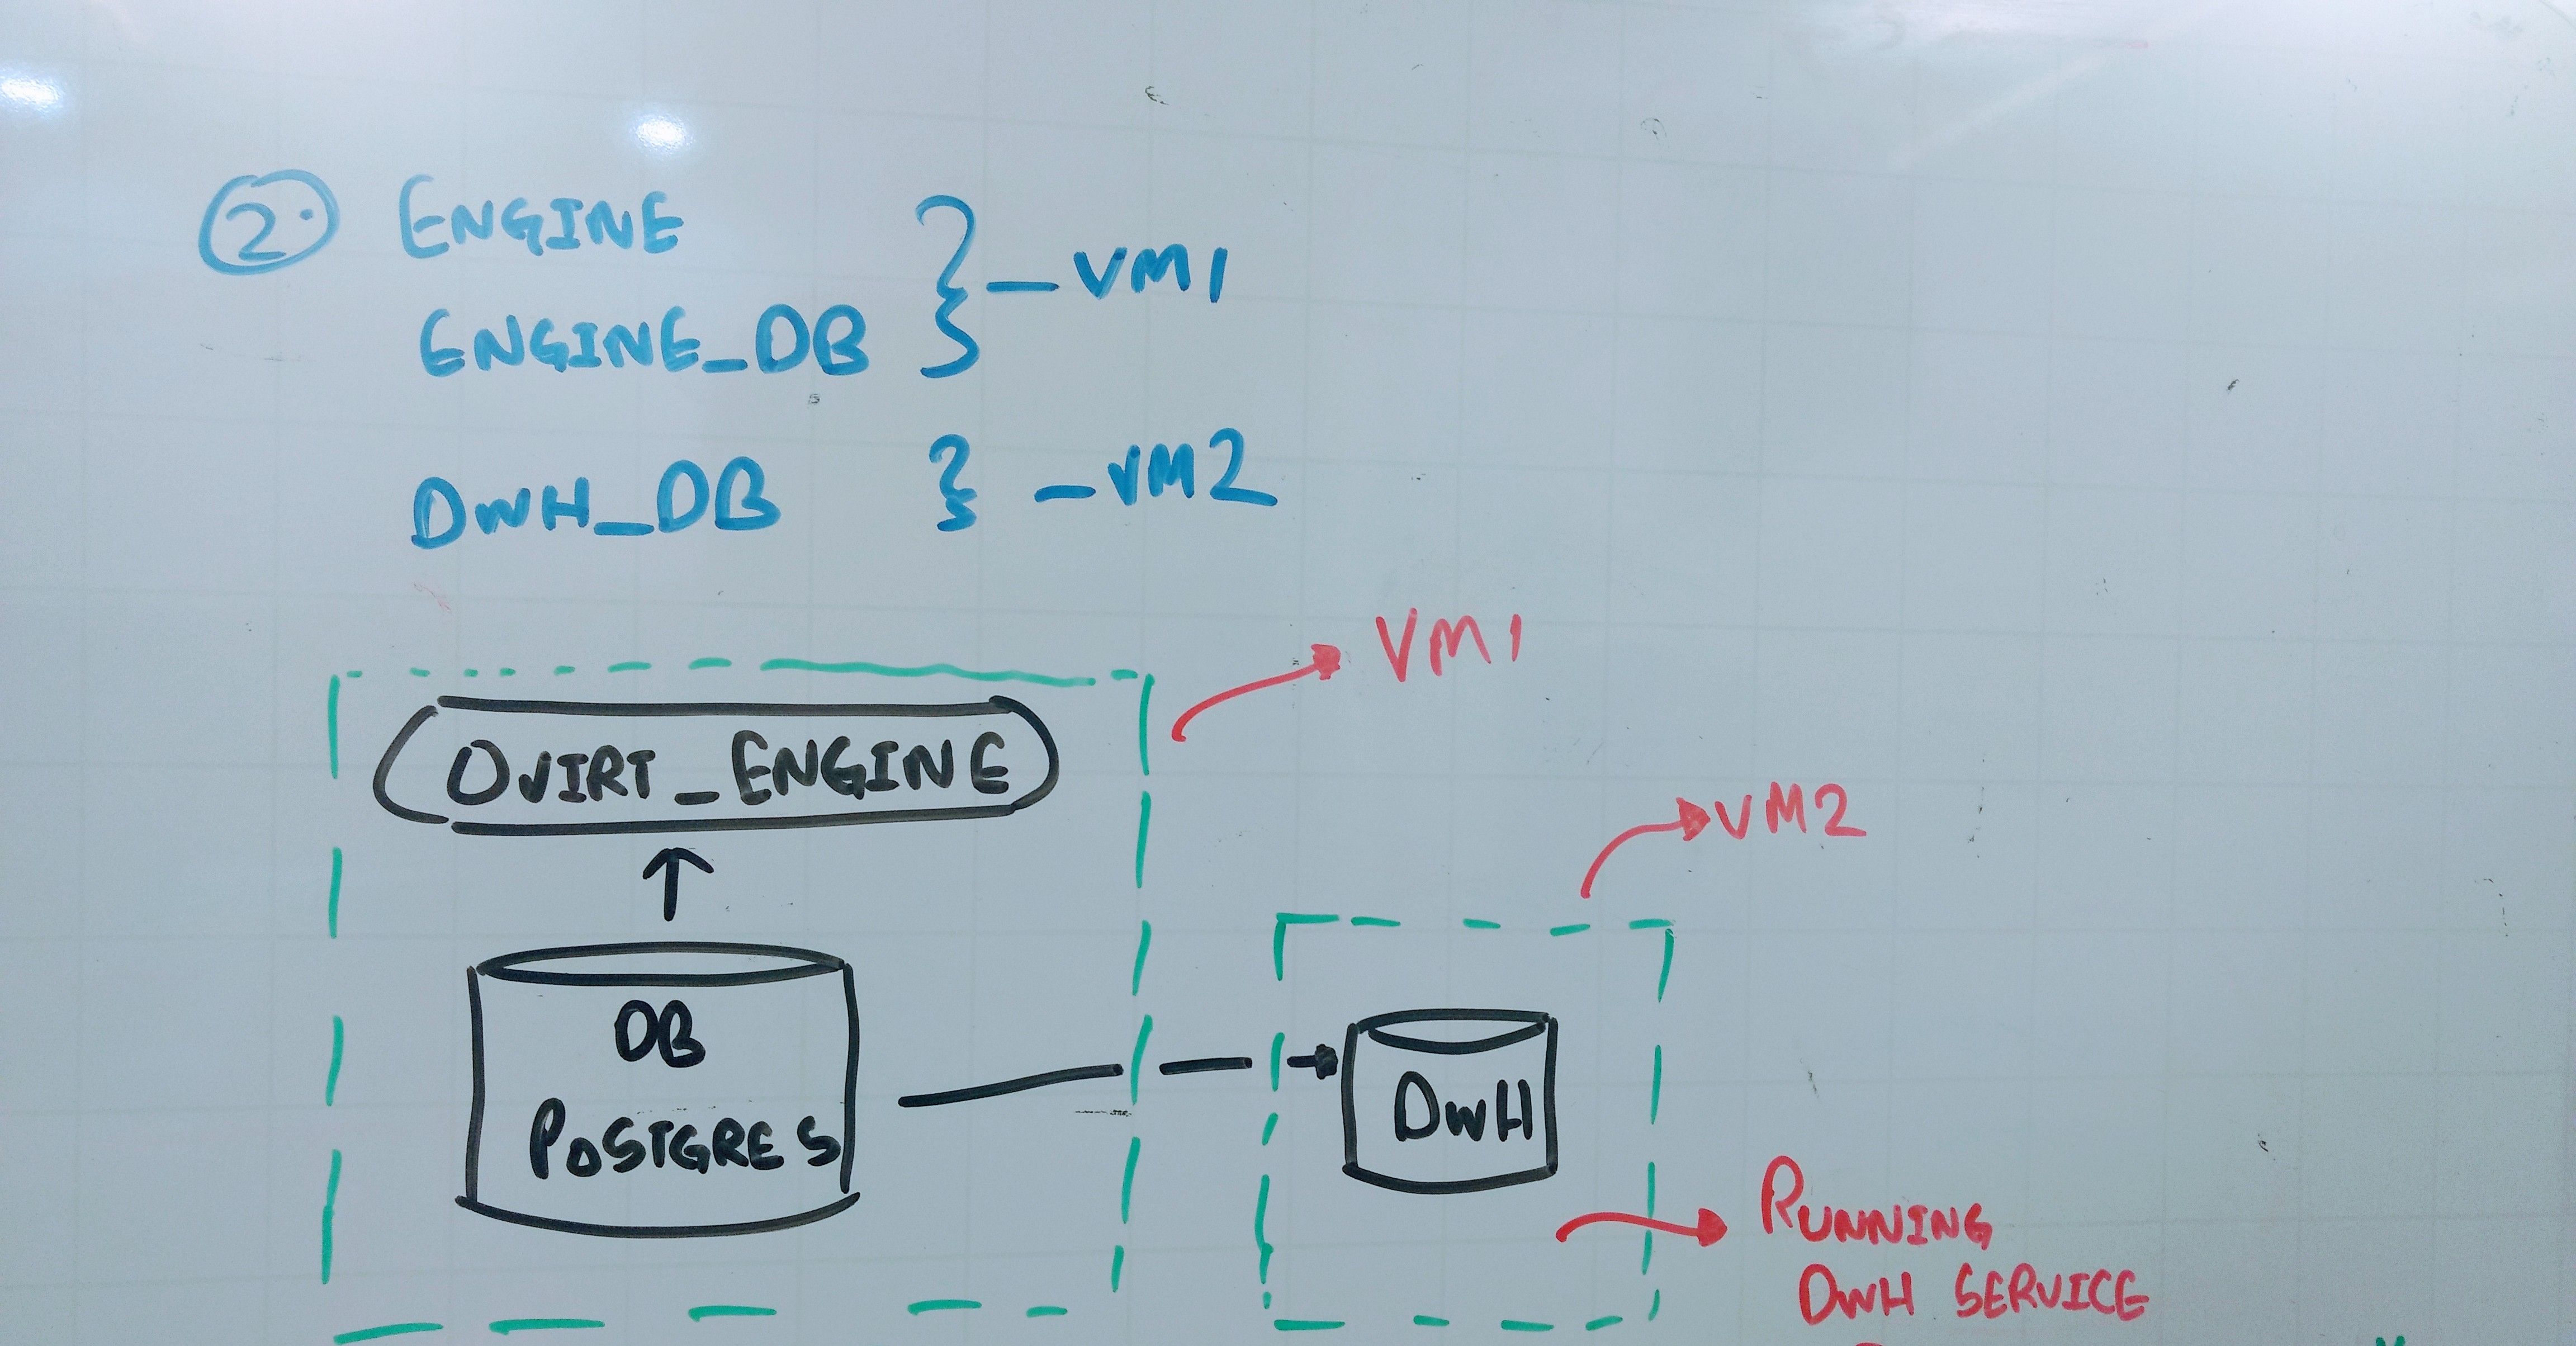 2. ENGINE } - VM1
ENGINE_DB
DWH_DB } - VM2
VM1
OVIRT_ENGINE
VM2
DB
POSTGRES
DWH
RUNNING
DWH SERVICE